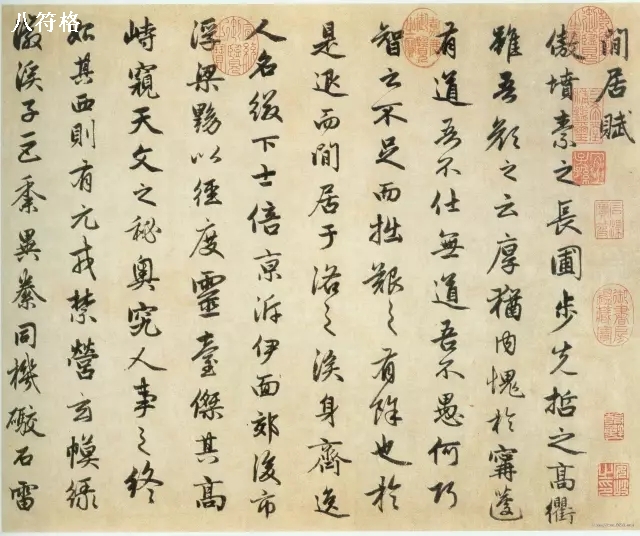 八符格
閒居賦
傲墳素之長圃步先哲之高衢
雖吾顏之云厚猶內愧於甯蘧
有道吾不仕無道吾不愚何巧
智之不足而拙艱之有餘也於
是退而閒居于洛之涘身齊逸
人名綴下士倍京泝伊面郊後市
浮梁黝以徑度靈臺傑其高
峙窺天文之秘奧究人事之終
始其西則有元戎禁營玄幙綠
徽溪子巨黍異絭同機礮石雷